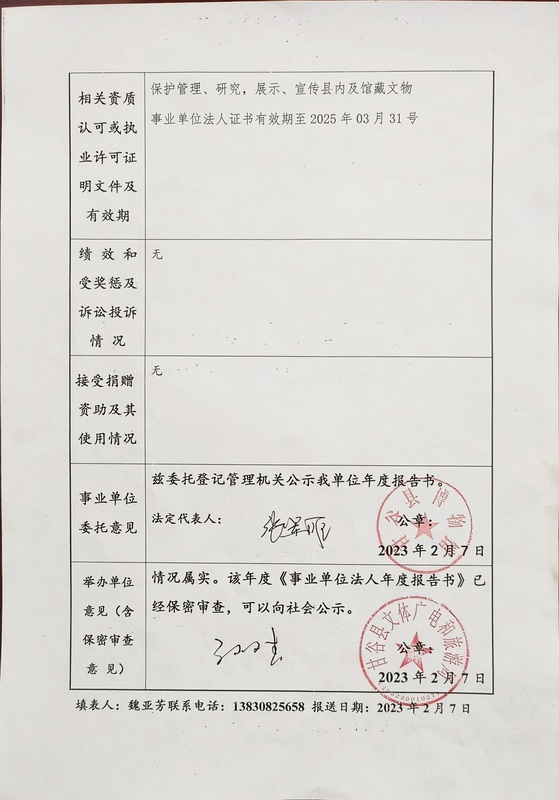 相关资质
认可或执
业许可证
明文件及
有效期
保护管理、研究，展示、宣传县内及馆藏文物
事业单位法人证书有效期至 2025 年 03 月 31 号
绩 效 和
受奖惩及
诉讼投诉
情 况
无
接受捐赠
资助及其
使用情况
无
事业单位
委托意见
兹委托登记管理机关公示我单位年度报告书。
法定代表人：
公章：
甘谷县博物馆
2023 年 2 月 7 日
举办单位
意见（含
保密审查
意 见）
情况属实。该年度《事业单位法人年度报告书》已
经保密审查，可以向社会公示。
公章：
甘谷县文体广电和旅游局
2023 年 2 月 7 日
填表人：魏亚芳联系电话：13830825658 报送日期：2023 年 2 月 7 日